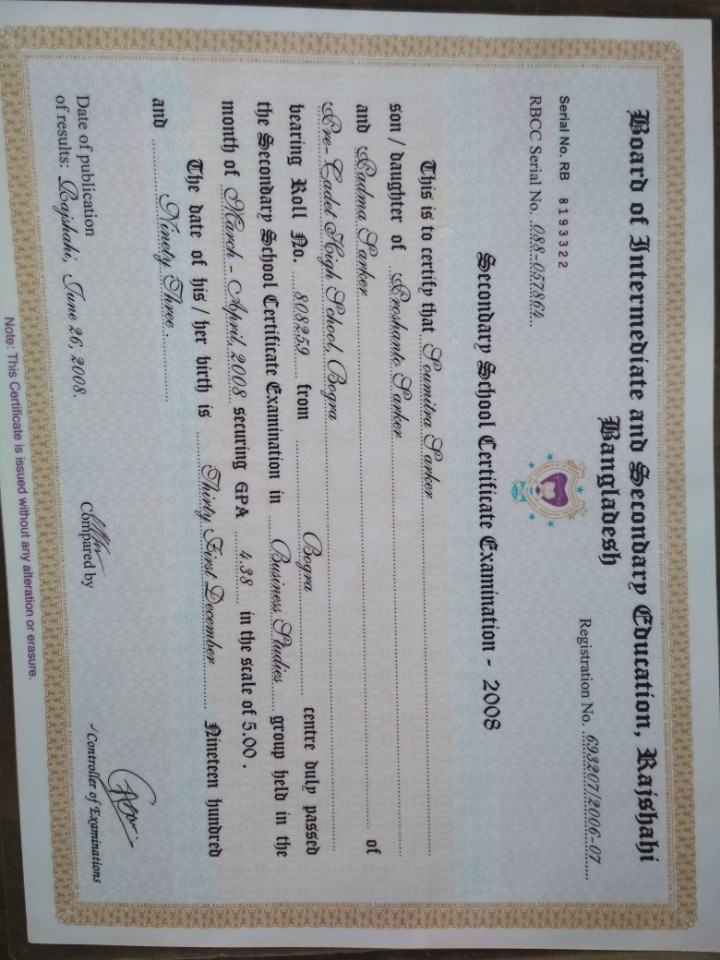 Board of Intermediate and Secondary Education, Rajshahi
Bangladesh
Serial No. RB 8193322
RBCC Serial No. 088-057864
Registration No. 693207/2006-07
Secondary School Certificate Examination - 2008
This is to certify that Soumitra Sarker
son / daughter of Proshanto Sarker
and Padma Sarker of
Pre-Cadet High School, Bogra
bearing Roll No. 808259 from Bogra centre duly passed
the Secondary School Certificate Examination in Business Studies group held in the
month of March - April, 2008 securing GPA 4.38 in the scale of 5.00 .
The date of his / her birth is Thirty First December Nineteen hundred
and Ninety Three
Date of publication
of results: Rajshahi, June 26, 2008.
Compared by
Controller of Examinations
Note: This Certificate is issued without any alteration or erasure.